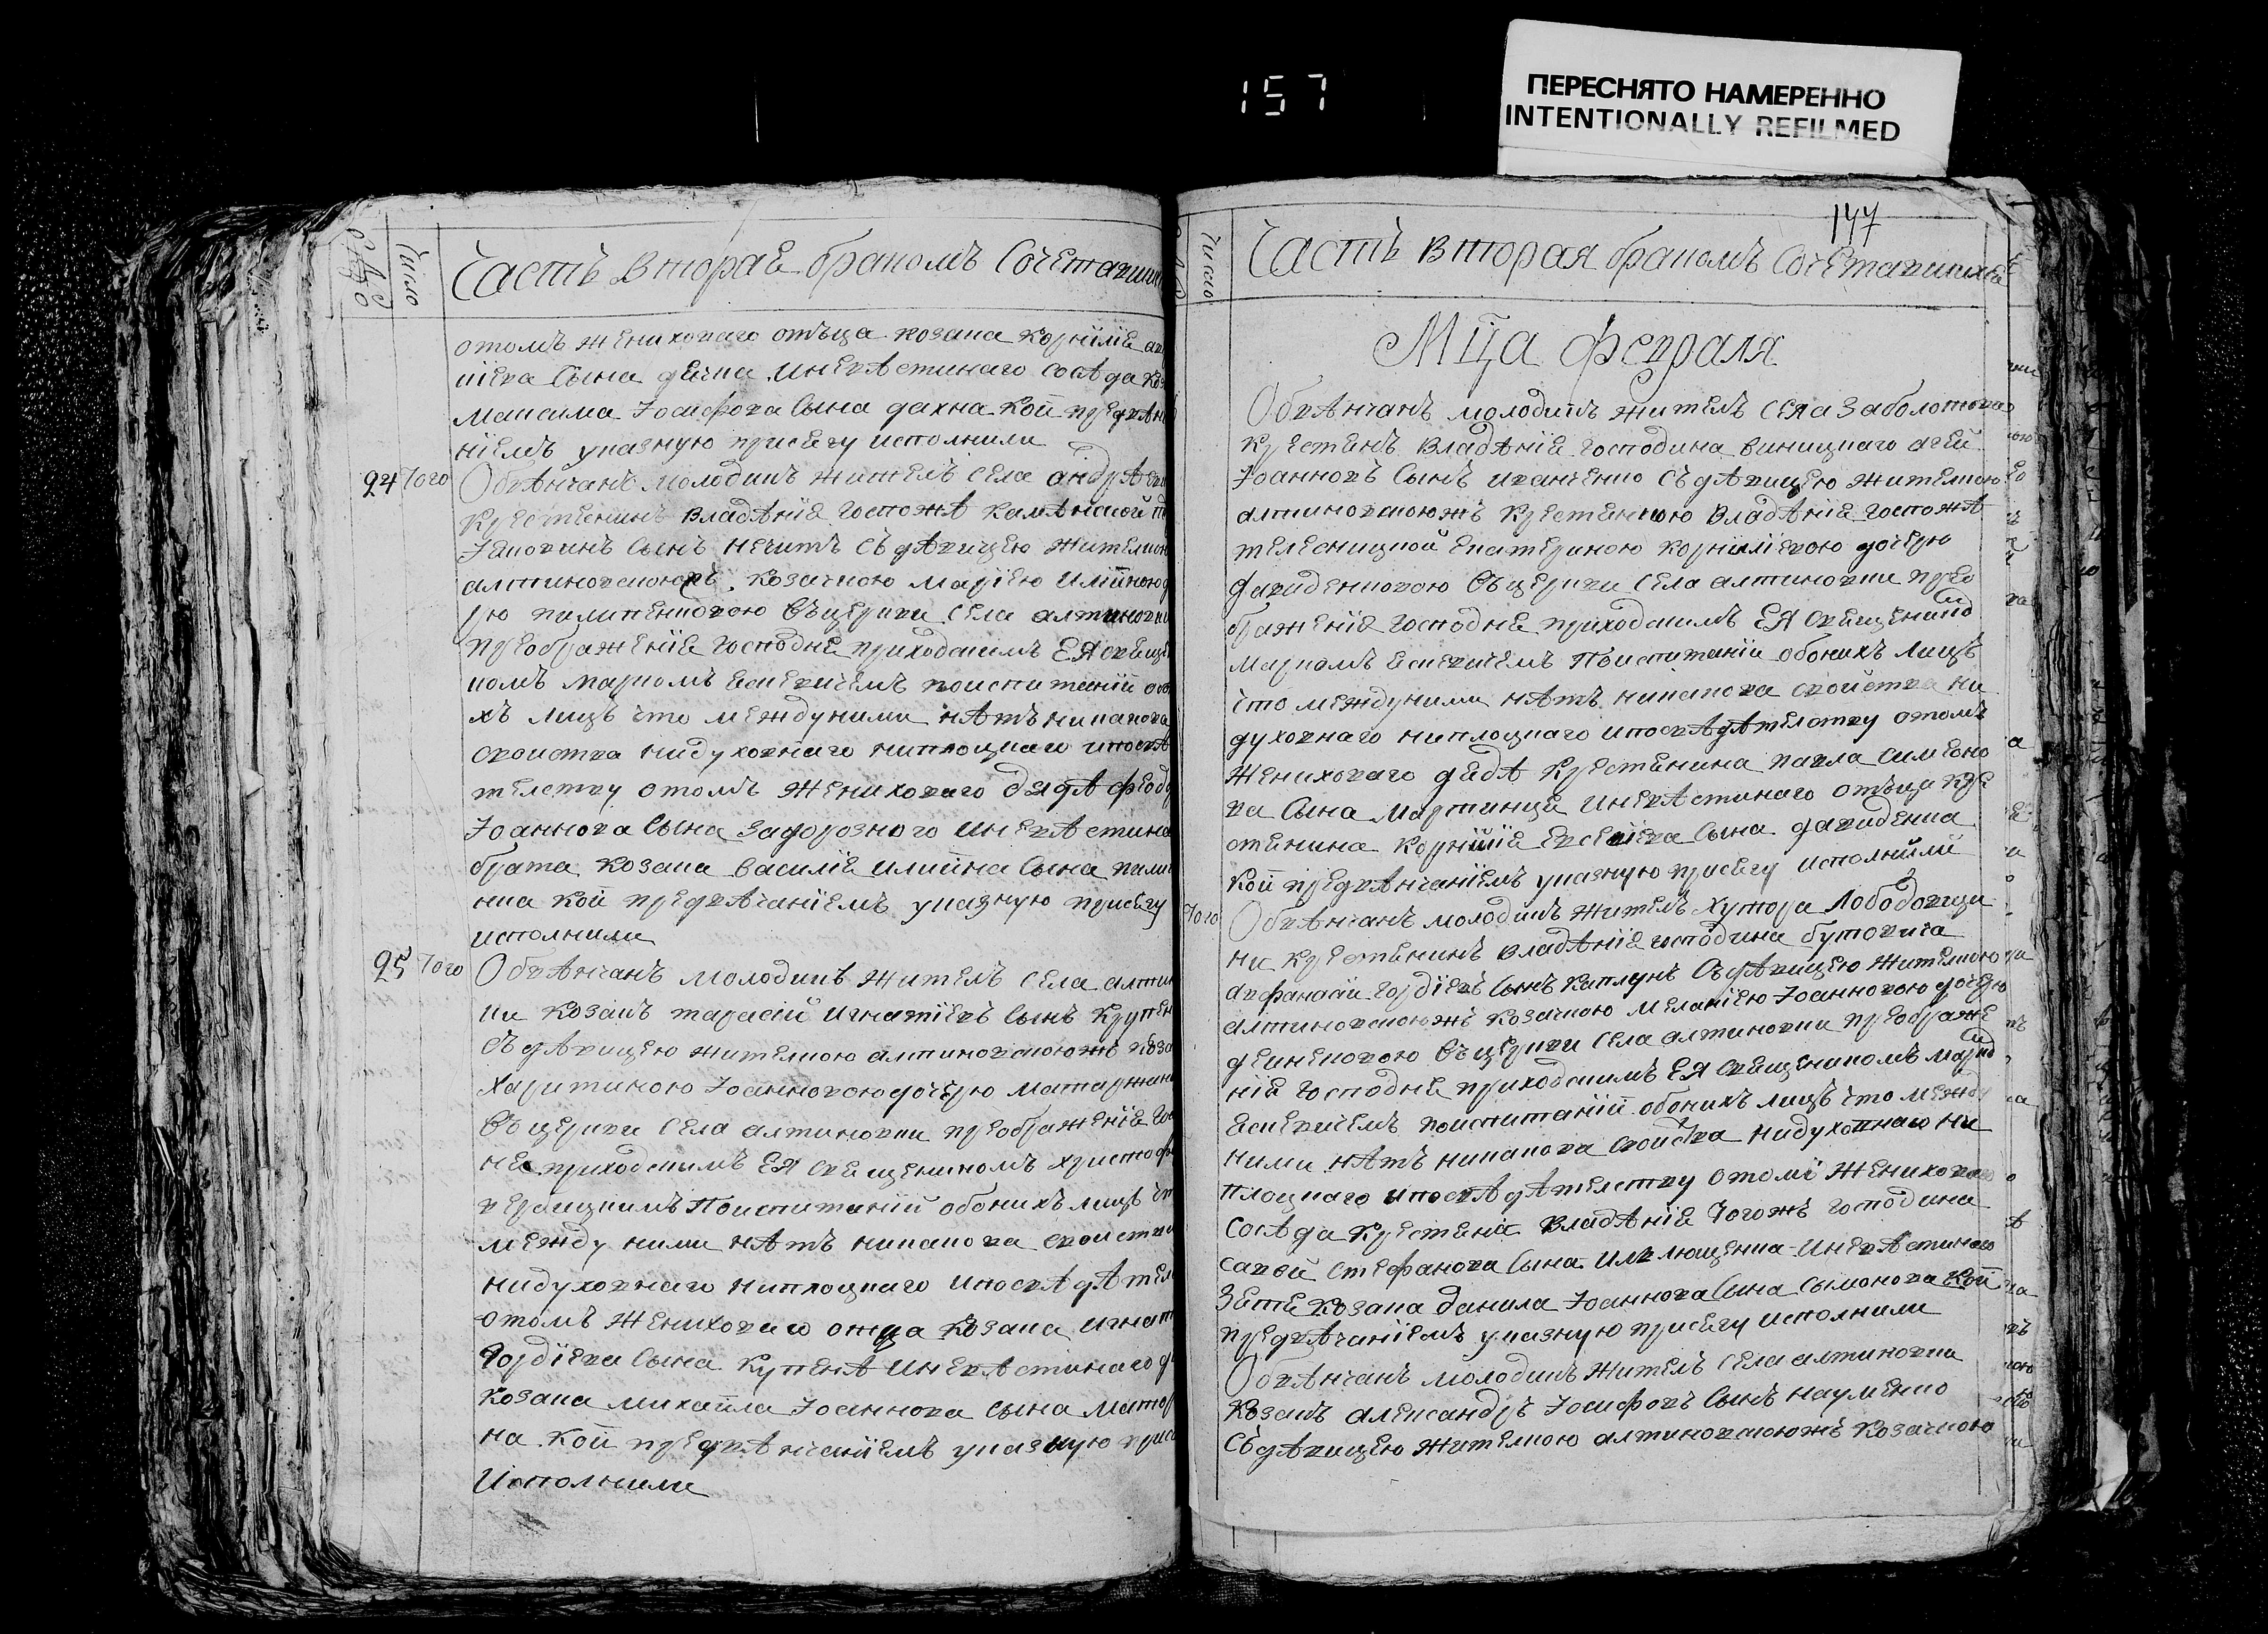 157
ПЕРЕСНЯТО НАМЕРЕННО
INTENTIONALLY REFILMED
Число
Часть вторае бракомъ Сочетавши
отомъ жениховаго отъца козака Корніліе
Сына деіна иневѣстинаго сосѣда
Максима Іосифова Сына дахна кой предвѣн
ніемъ указную присягу исполнили
24 Того Обвѣнчанъ молодикъ житель села андрѣев
Крестенинъ владѣніе госпожѣ
Іаковинъ Сынъ съ дѣвицею жителкою
алтиновскоюжъ козачкою Маріею Иліиною
рю пилипенковою въцеркви села алтиновки
преображеніе господне приходскимъ Ея свеще
комъ Маркомъ Есиевичемъ поиспитаніи обо
хъ лицъ что междуними нѣтъ никакова
своиства нидуховнаго ниплоцкаго ипосвѣ
телству отомъ жениховаго дядѣ Феод
Іоаннова Сына Задорозного иневѣстина
брата козака василіе иліина Сына пили
нка кой предвѣчаніемъ указную присегу
исполнили
25 Того Обвѣнчанъ молодикъ житель села алтин
ки козакъ тарасій игнатіевъ Сынъ Купен
съ дѣвицею жителкою алтиновскоюжъ коза
Харитиною Іоанновоюдочерю
въ церкви села алтиновки преображеніе гос
не приходскимъ Ея свещеникомъ Христоф
вербицкимъ поиспитаніи обоихъ лицъ чт
между ними нѣтъ никакова своиства
нидуховнаго ниплоцкаго ипосвѣдѣтел
отомъ жениховаго отца козака игнат
Гордіева Сына Купенѣ иневѣстинаго
козака михаила Іоаннова Сына
на кой предвѣнчаніемъ указную прис
исполнили
147
Число
Часть вторая бракомъ Сочетавшихсе
Мца февраля
Обвѣнчанъ молодикъ житель села Заболотова
крестенъ владѣніе господина виницкаго агей
Іоанновъ Сынъ иваненко съ дѣвицею жителкою
алтиновскоюжъ крестенкою владѣніе госпожѣ
телесницкой Екатериною корниліевою дочерю
давиденковою въцеркви села алтиновки прео
браженіе господне приходскимъ Ея свещенико
маркомъ Есиевичемъ поиспитаніи обоихъ лицъ
что междуними нѣтъ никакова своиства ни
духовнаго ниплоцкаго ипосвѣдѣтелству отомъ
жениховаго дедѣ крестенина павла симеоно
ва Сына мартинце иневѣстинаго отъца кре
стенина корніліе Сына давиденка
кой предвѣнчаніемъ указную присегу исполнили
Того Обвѣнчанъ молодикъ житель хутора Лободовщи
ни крестенинъ владѣніе господина бутовича
афанасій гордіевъ Сынъ каплунъ съдѣвицею жителкою
алтиновскоюжъ козачкою меланіею Іоанновою дочерю
дейнековою въцеркви села алтиновки преображе
ніе господне приходскимъ Ея свещеникомъ марко
Есиевичемъ поиспитаніи обоихъ лицъ что межд
ними нѣтъ никакова своиства нидуховнаго ни
плоцкаго ипосвѣдѣтелству отомъ женихова
сосѣда крестена владѣніе тогожъ господина
савой Стефанова Сына иневѣстинаго
зете козака данила Іоаннова Сына Симонова кой
предвѣчаніемъ указную присегу исполнили
Обвѣнчанъ молодикъ житель села алтиновки
козакъ александръ Іосифовъ Сынъ науменко
съдѣвицею жителкою алтиновскоюжъ козачкою